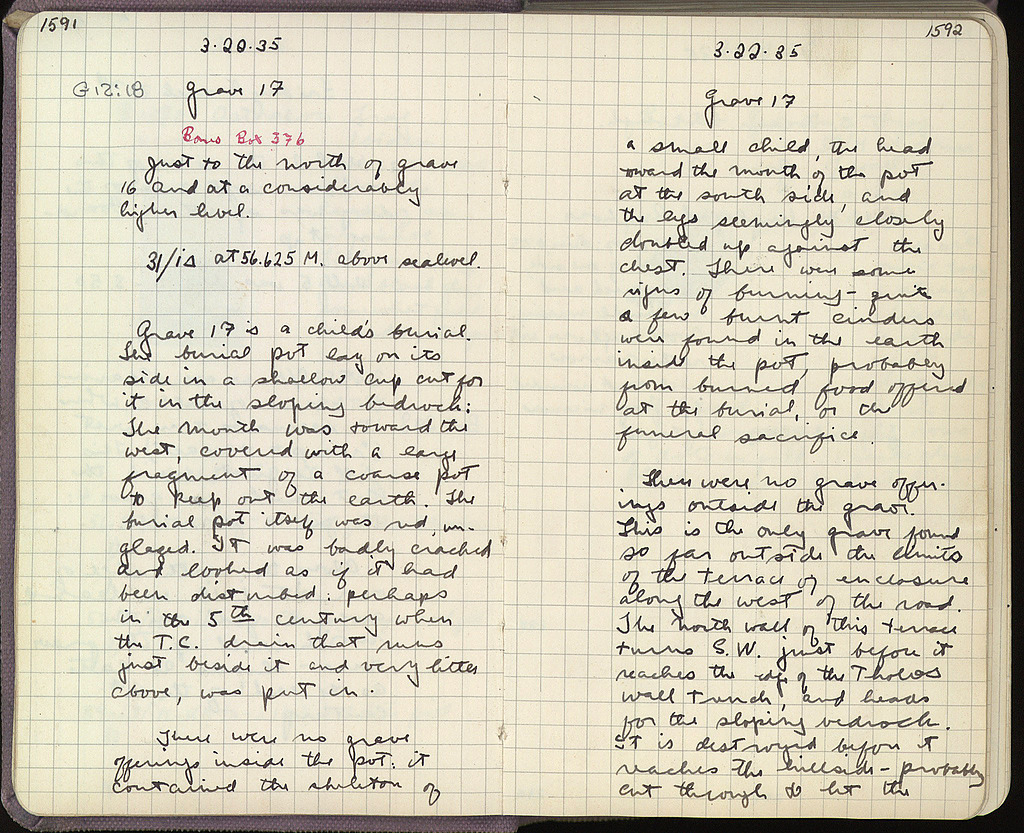 1591
3·20·35
G12:18 Grave 17
Bones Box 376
Just to the north of grave
16 and at a considerably
higher level.
31/ΙΔ at 56.625 M. above sealevel.
Grave 17 is a child's burial.
The burial pot lay on its
side in a shallow cup cut for
it in the sloping bedrock:
The mouth was toward the
west, covered with a large
fragment of a coarse pot
to keep out the earth. The
burial pot itself was red, un-
glazed. It was badly cracked
and looked as if it had
been disturbed: perhaps
in the 5th century when
the T.C. drain that runs
just beside it and very little
above, was put in.
There were no grave
offerings inside the pot: it
contained the skeleton of
1592
3·22·35
Grave 17
a small child, the head
toward the mouth of the pot
at the south side, and
the legs seemingly closely
doubled up against the
chest. There were some
signs of burning - quite
a few burnt cinders
were found in the earth
inside the pot, probably
from burned food offered
at the burial, or the
funeral sacrifice.
There were no grave offer-
ings outside the grave.
This is the only grave found
so far outside the limits
of the terrace of enclosure
along the west of the road.
The north wall of this terrace
turns S.W. just before it
reaches the edge of the Tholos
wall trench, and heads
for the sloping bedrock.
It is destroyed before it
reaches the hillside - probably
cut through to let the